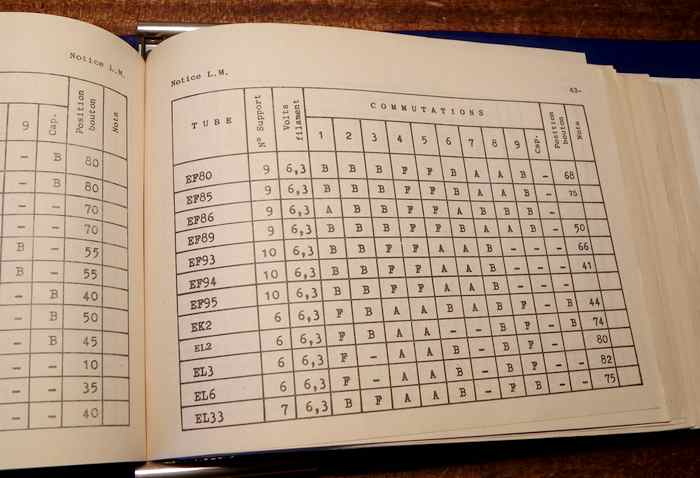 Notice L.M.
9 Cap. Position bouton Note
- B 80
- B 80
- - 70
- - 70
B - 55
B - 55
- B 40
- B 50
- B 45
- - 10
- - 35
- - 40
Notice L.M.
43-
TUBE N° Support Volts filament COMMUTATIONS Position bouton Note
1 2 3 4 5 6 7 8 9 Cap.
EF80 9 6,3 B B B F F B A A B - 68
EF85 9 6,3 B B B F F B A A B - 75
EF86 9 6,3 A B B F F A B B B -
EF89 9 6,3 B B B F F B A A B - 50
EF93 10 6,3 B B F F A A B - - - 66
EF94 10 6,3 B B F F A A B - - - 41
EF95 10 6,3 B B F F A A B - - -
EK2 6 6,3 F B A A B A B F - B 44
EL2 6 6,3 F B A A - - B F - B 74
EL3 6 6,3 F - A A B - B F - - 80
EL6 6 6,3 F - A A B - B F - - 82
EL33 7 6,3 B F A A B - F B - - 75